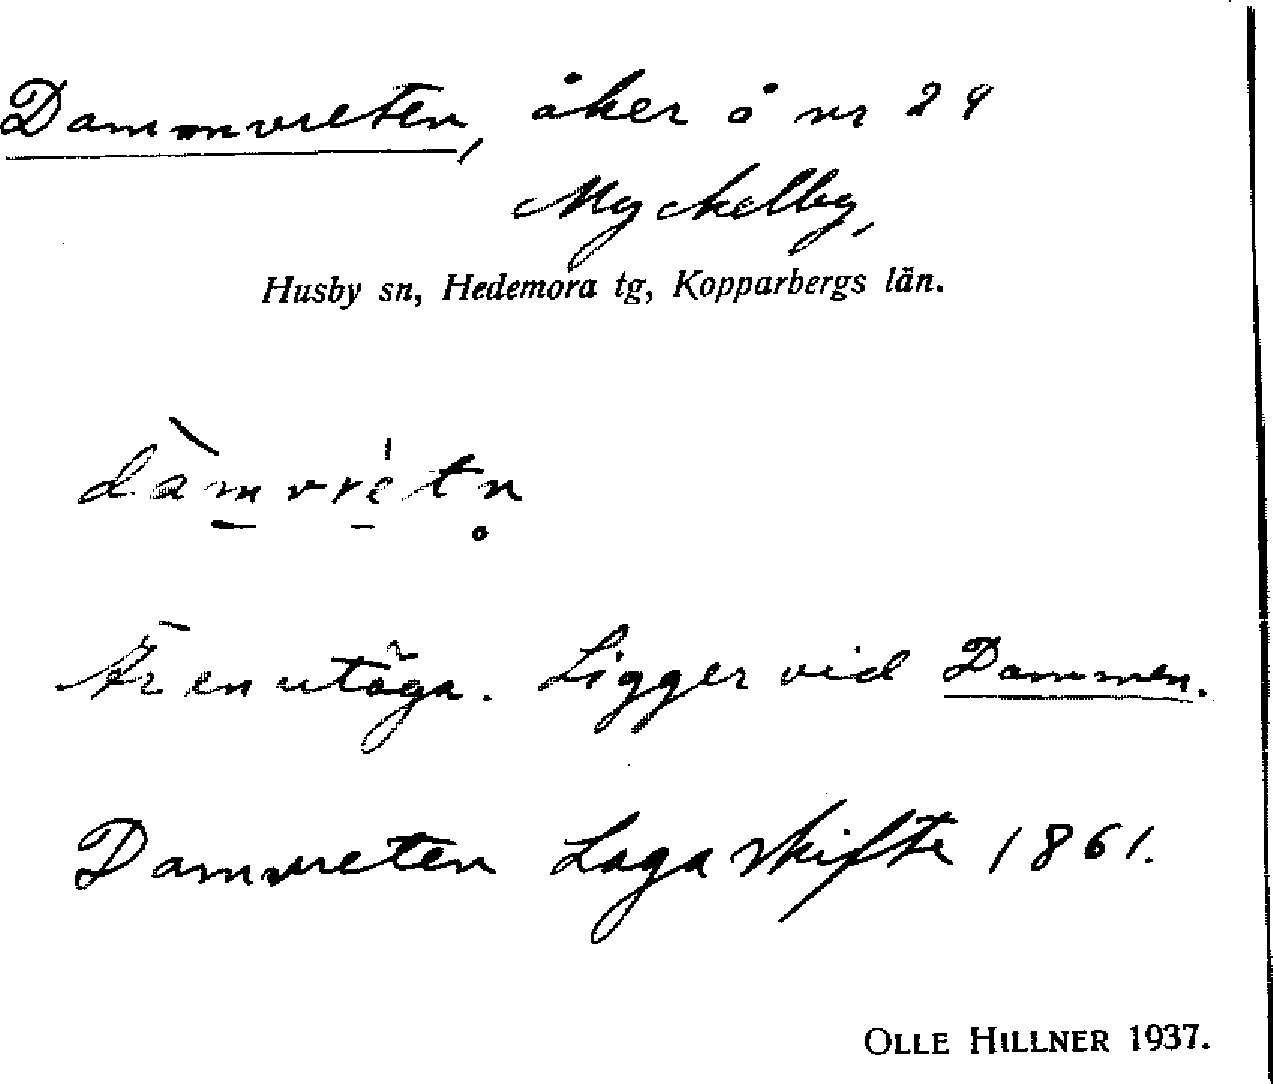 Dammvreten, åker å nr 29
Myckelby,
Husby sn, Hedemora tg, Kopparbergs län.
dàm̱vrètn̥
Är en utäga. Ligger vid Dammen.
Damvreten Laga skifte 1861.
OLLE HILLNER 1937.